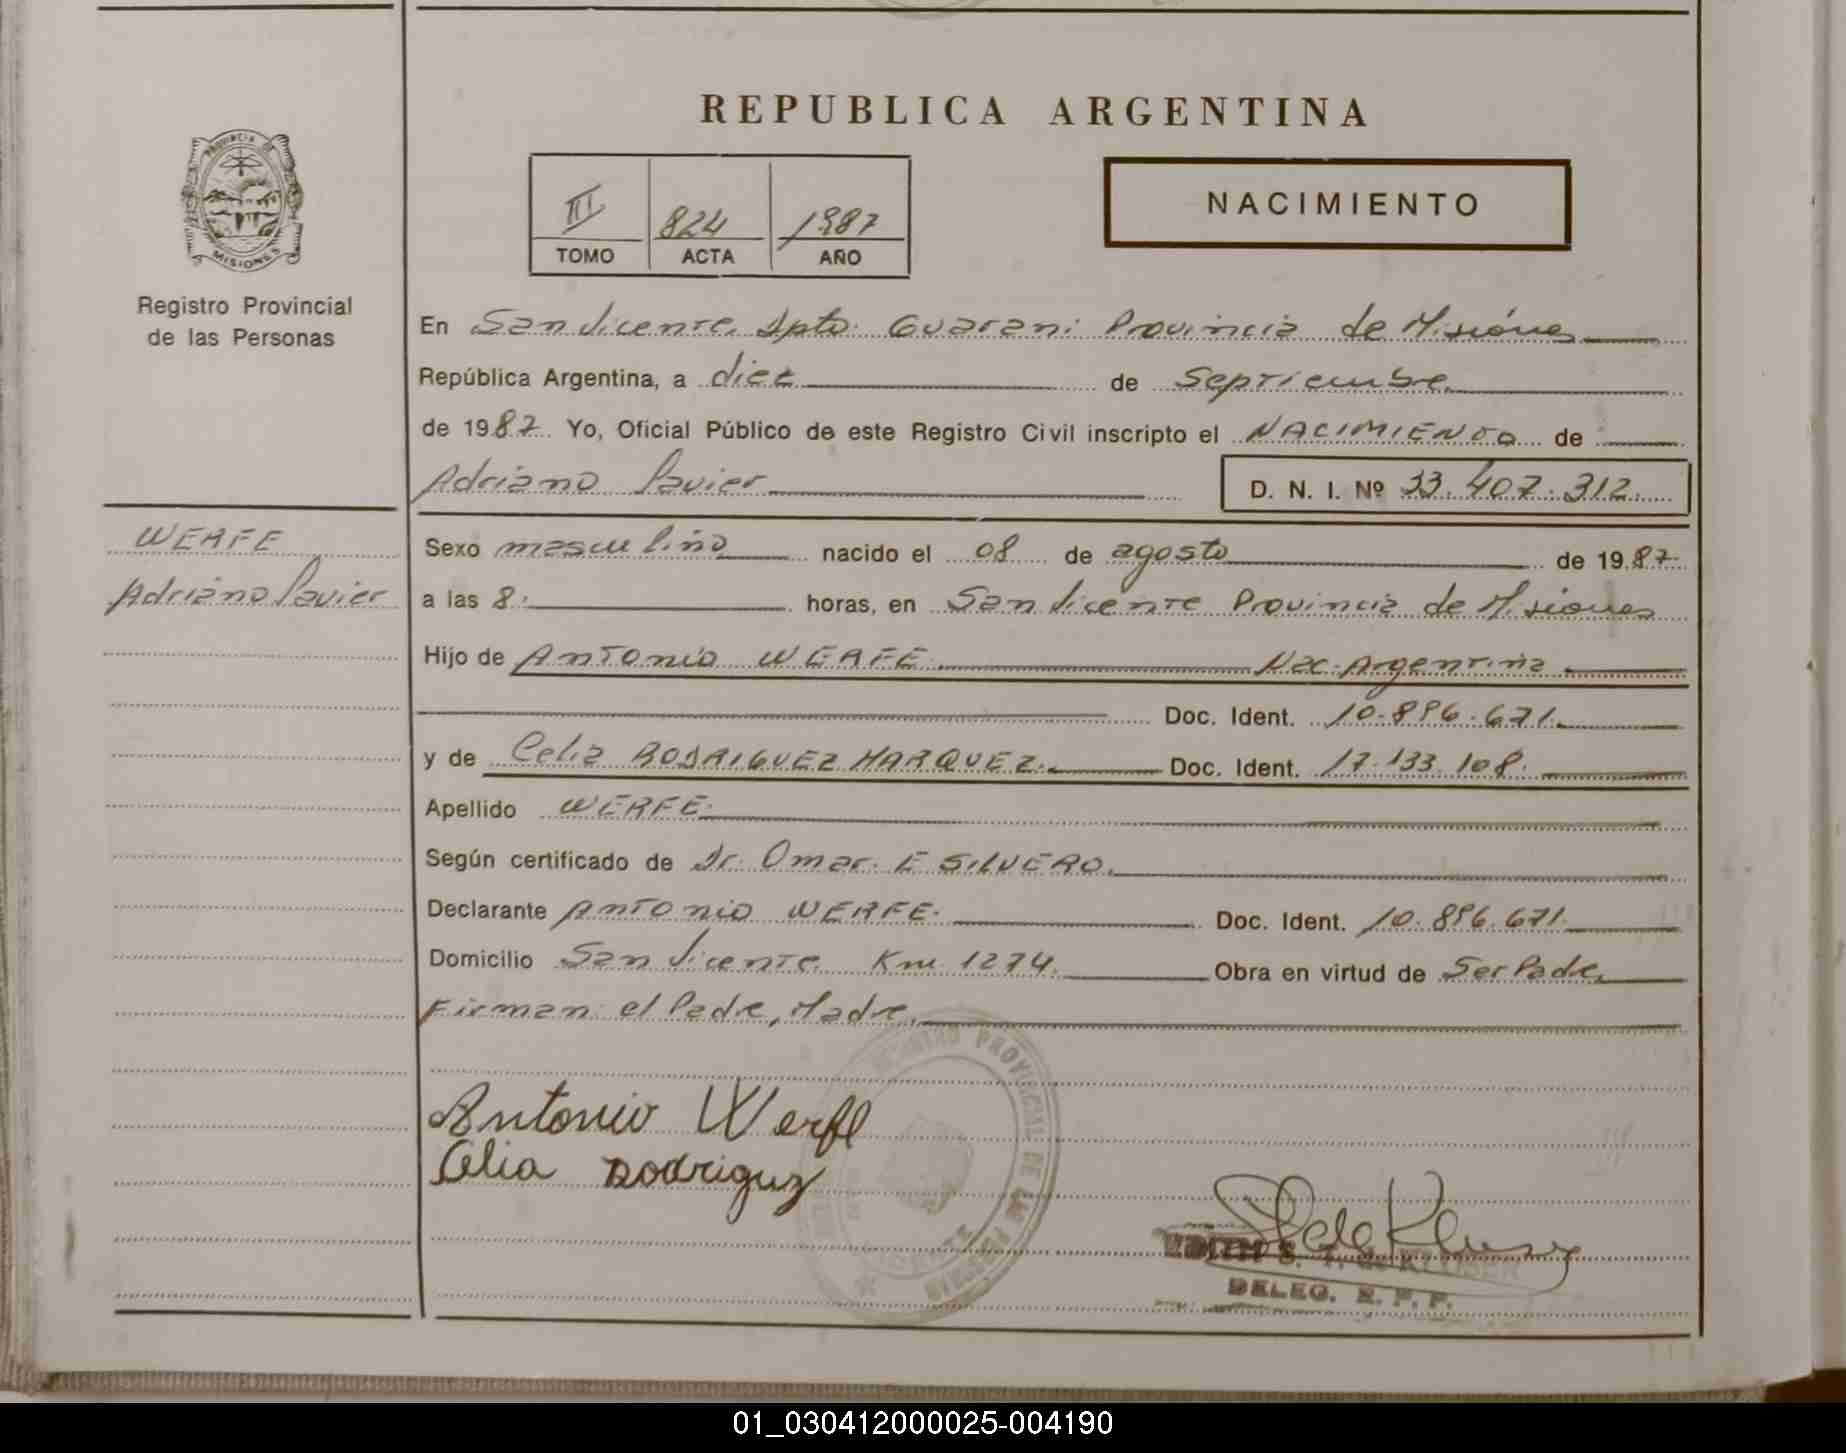 REPUBLICA ARGENTINA
PROVINCIA DE
MISIONES
Registro Provincial
de las Personas
III 824 1987
TOMO ACTA AÑO
NACIMIENTO
En San Vicente, Dpto. Guarani Provincia de Misiónes
República Argentina, a diez de Septiembre
de 1987 Yo, Oficial Público de este Registro Civil inscripto el NACIMIENTO de
Adriano Javier D. N. I. Nº 33.407.312.
WERFE
Adriano Javier
Sexo masculino nacido el 08 de agosto de 1987
a las 8: horas, en San Vicente Provincia de Misiones
Hijo de Antonio WERFE Nac. Argentina
Doc. Ident. 10.896.671.
y de Celia RODRIGUEZ MARQUEZ. Doc. Ident. 17.133.108.
Apellido WERFE
Según certificado de Dr. Omar. E SILVERO.
Declarante Antonio WERFE. Doc. Ident. 10.896.671.
Domicilio San Vicente Km 1274. Obra en virtud de Ser Padre
Firman: el Padre, Madre.
Antonio Werfe
Celia Rodriguz
REGISTRO PROVINCIAL DE LAS PERSONAS
EDITH S. T. de KLUSER
DELEG. R. P. P.
01_030412000025-004190